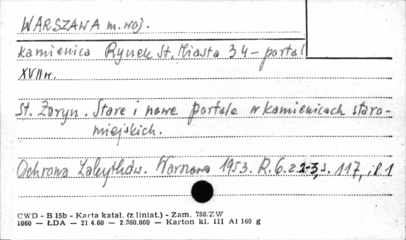 WARSZAWA m. woj.
Kamienica Rynek St. Miasta 34 – portal
XVII w.
St. Żaryn. Stare i nowe portale w kamienicach staro-
miejskich.
Ochrona Zabytków. Warszawa 1953. R. 6. z 2-3, s. 117, il 1
CWD - B 15b - Karta katal. (z liniat.) - Zam. 788/ZW
1060 — ŁDA — 21 4.60 — 2.360.000 — Karton kl. III A1 160 g